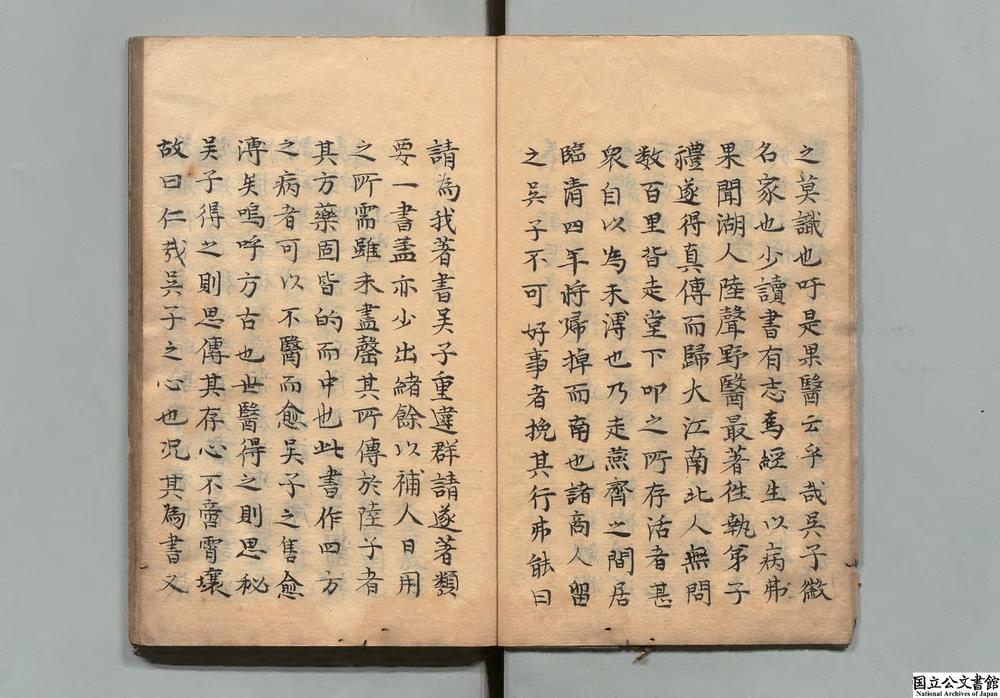 之莫識也吁是果醫云乎哉吳子徽
名家也少讀書有志焉經生以病弗
果聞湖人陸聲野醫最著徃執弟子
禮遂得真傳而歸大江南北人無問
数百里皆走堂下叩之所存活者甚
衆自以為未溥也乃走燕齊之間居
臨清四年将帰掉而南也諸商人留
之吳子不可好事者挽其行弗能曰
請為我著書吳子重違群請遂著類
要一書盖亦少出緒餘以補人日用
之所需雖未盡罄其所傳於陸子者
其方藥固皆的而中也此書作四方
之病者可以不醫而愈吳子之售愈
溥矣嗚呼方古也世醫得之則思秘
吳子得之則思傳其存心不啻霄壤
故曰仁哉吳子之心也况其為書又
国立公文書館
National Archives of Japan